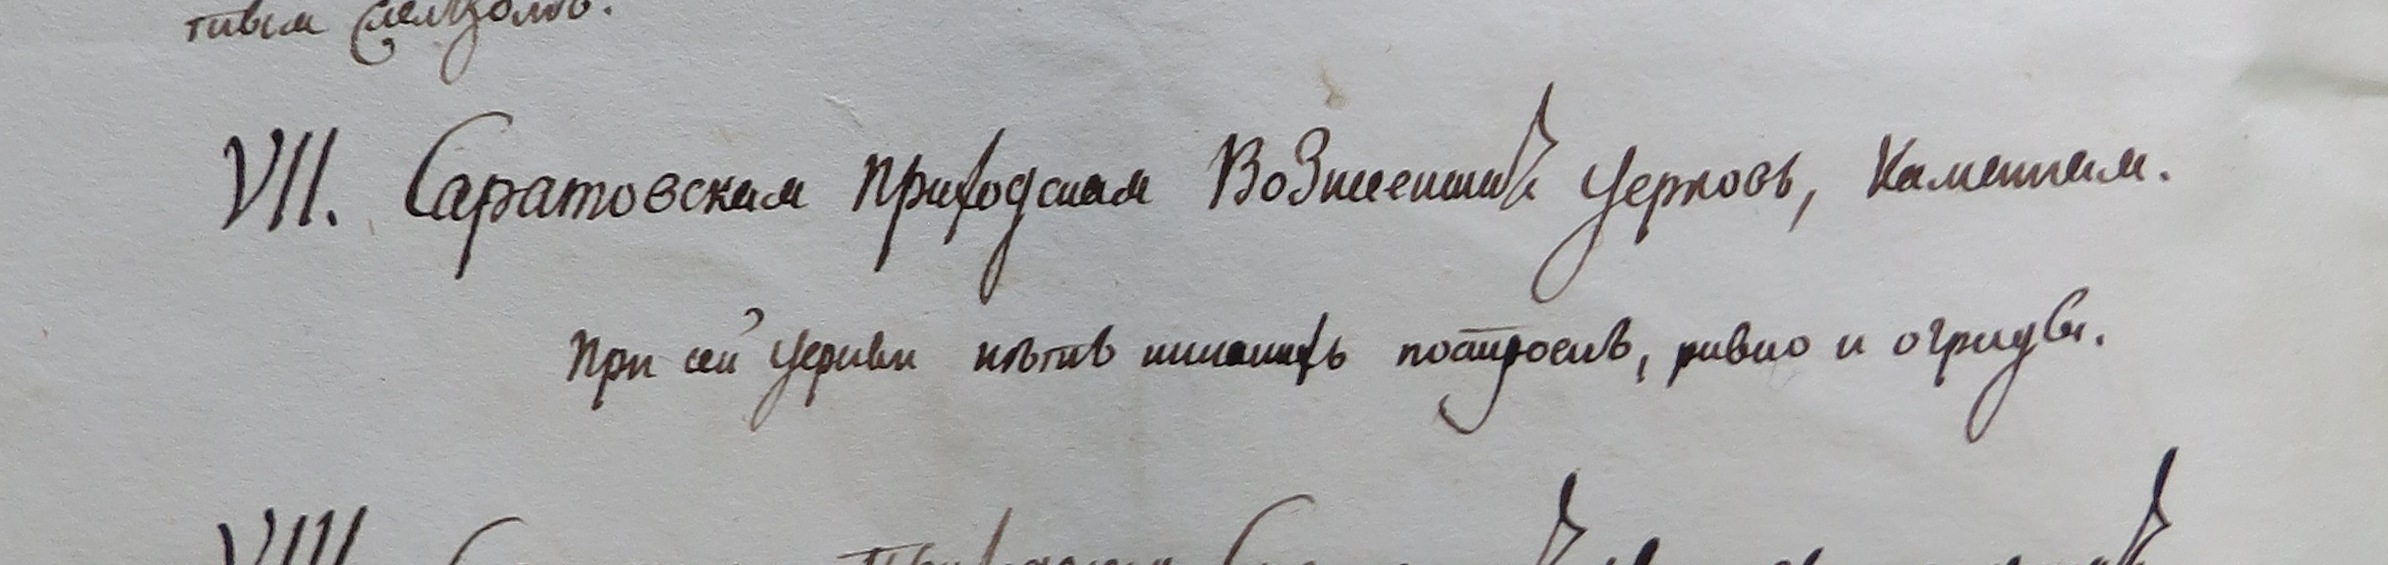 VII. Саратовская приходская Вознесенская церковь, каменная.
При сей церкви нѣтъ никакихъ построекъ, равно и ограды.
VIII.